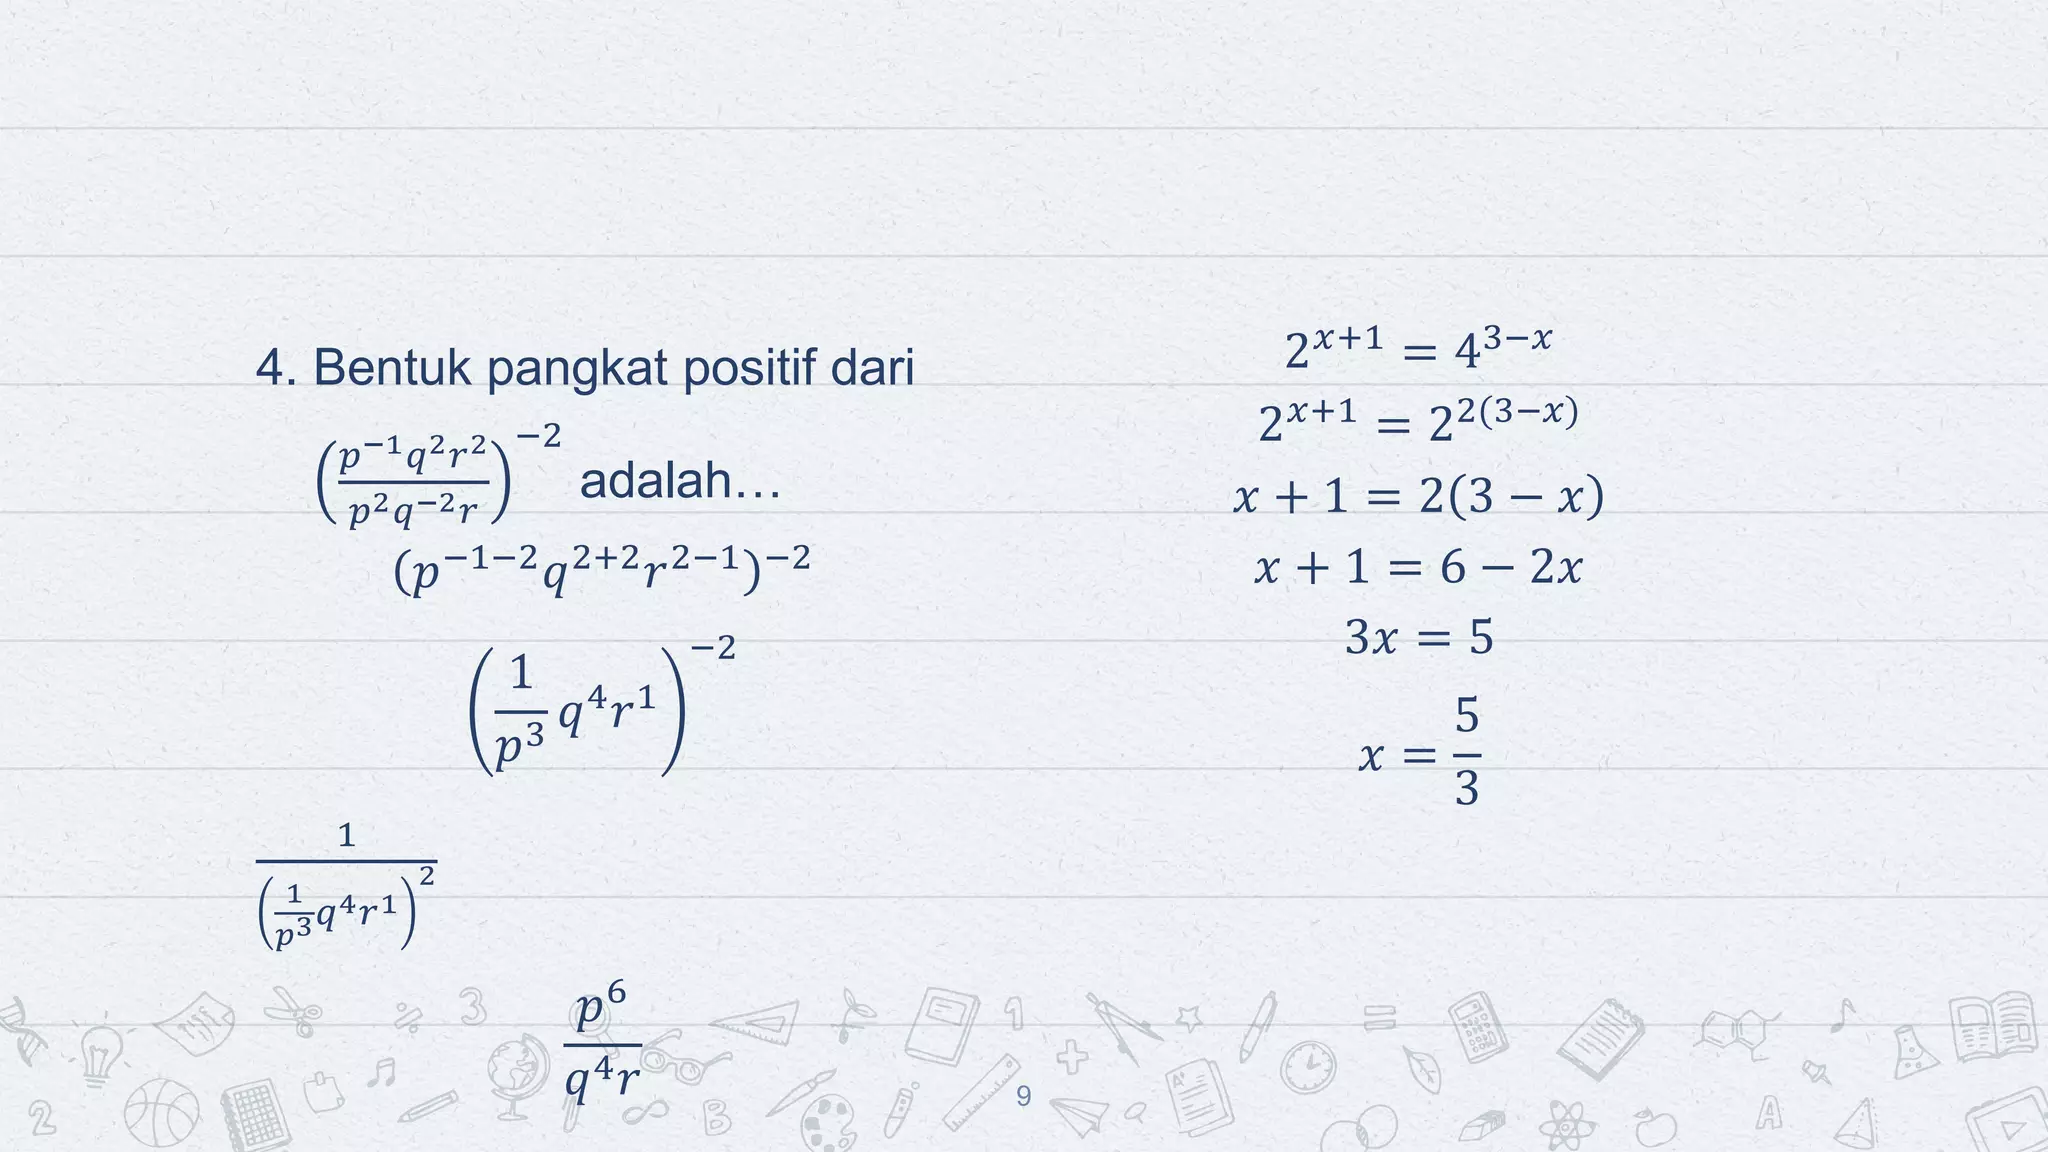 4. Bentuk pangkat positif dari
(p⁻¹q²r² / p²q⁻²r)⁻² adalah…
(p⁻¹⁻²q²⁺²r²⁻¹)⁻²
(1/p³ q⁴r¹)⁻²
1 / (1/p³ q⁴r¹)²
p⁶ / q⁴r
2ˣ⁺¹ = 4³⁻ˣ
2ˣ⁺¹ = 2²⁽³⁻ˣ⁾
x + 1 = 2(3 − x)
x + 1 = 6 − 2x
3x = 5
x = 5/3
9